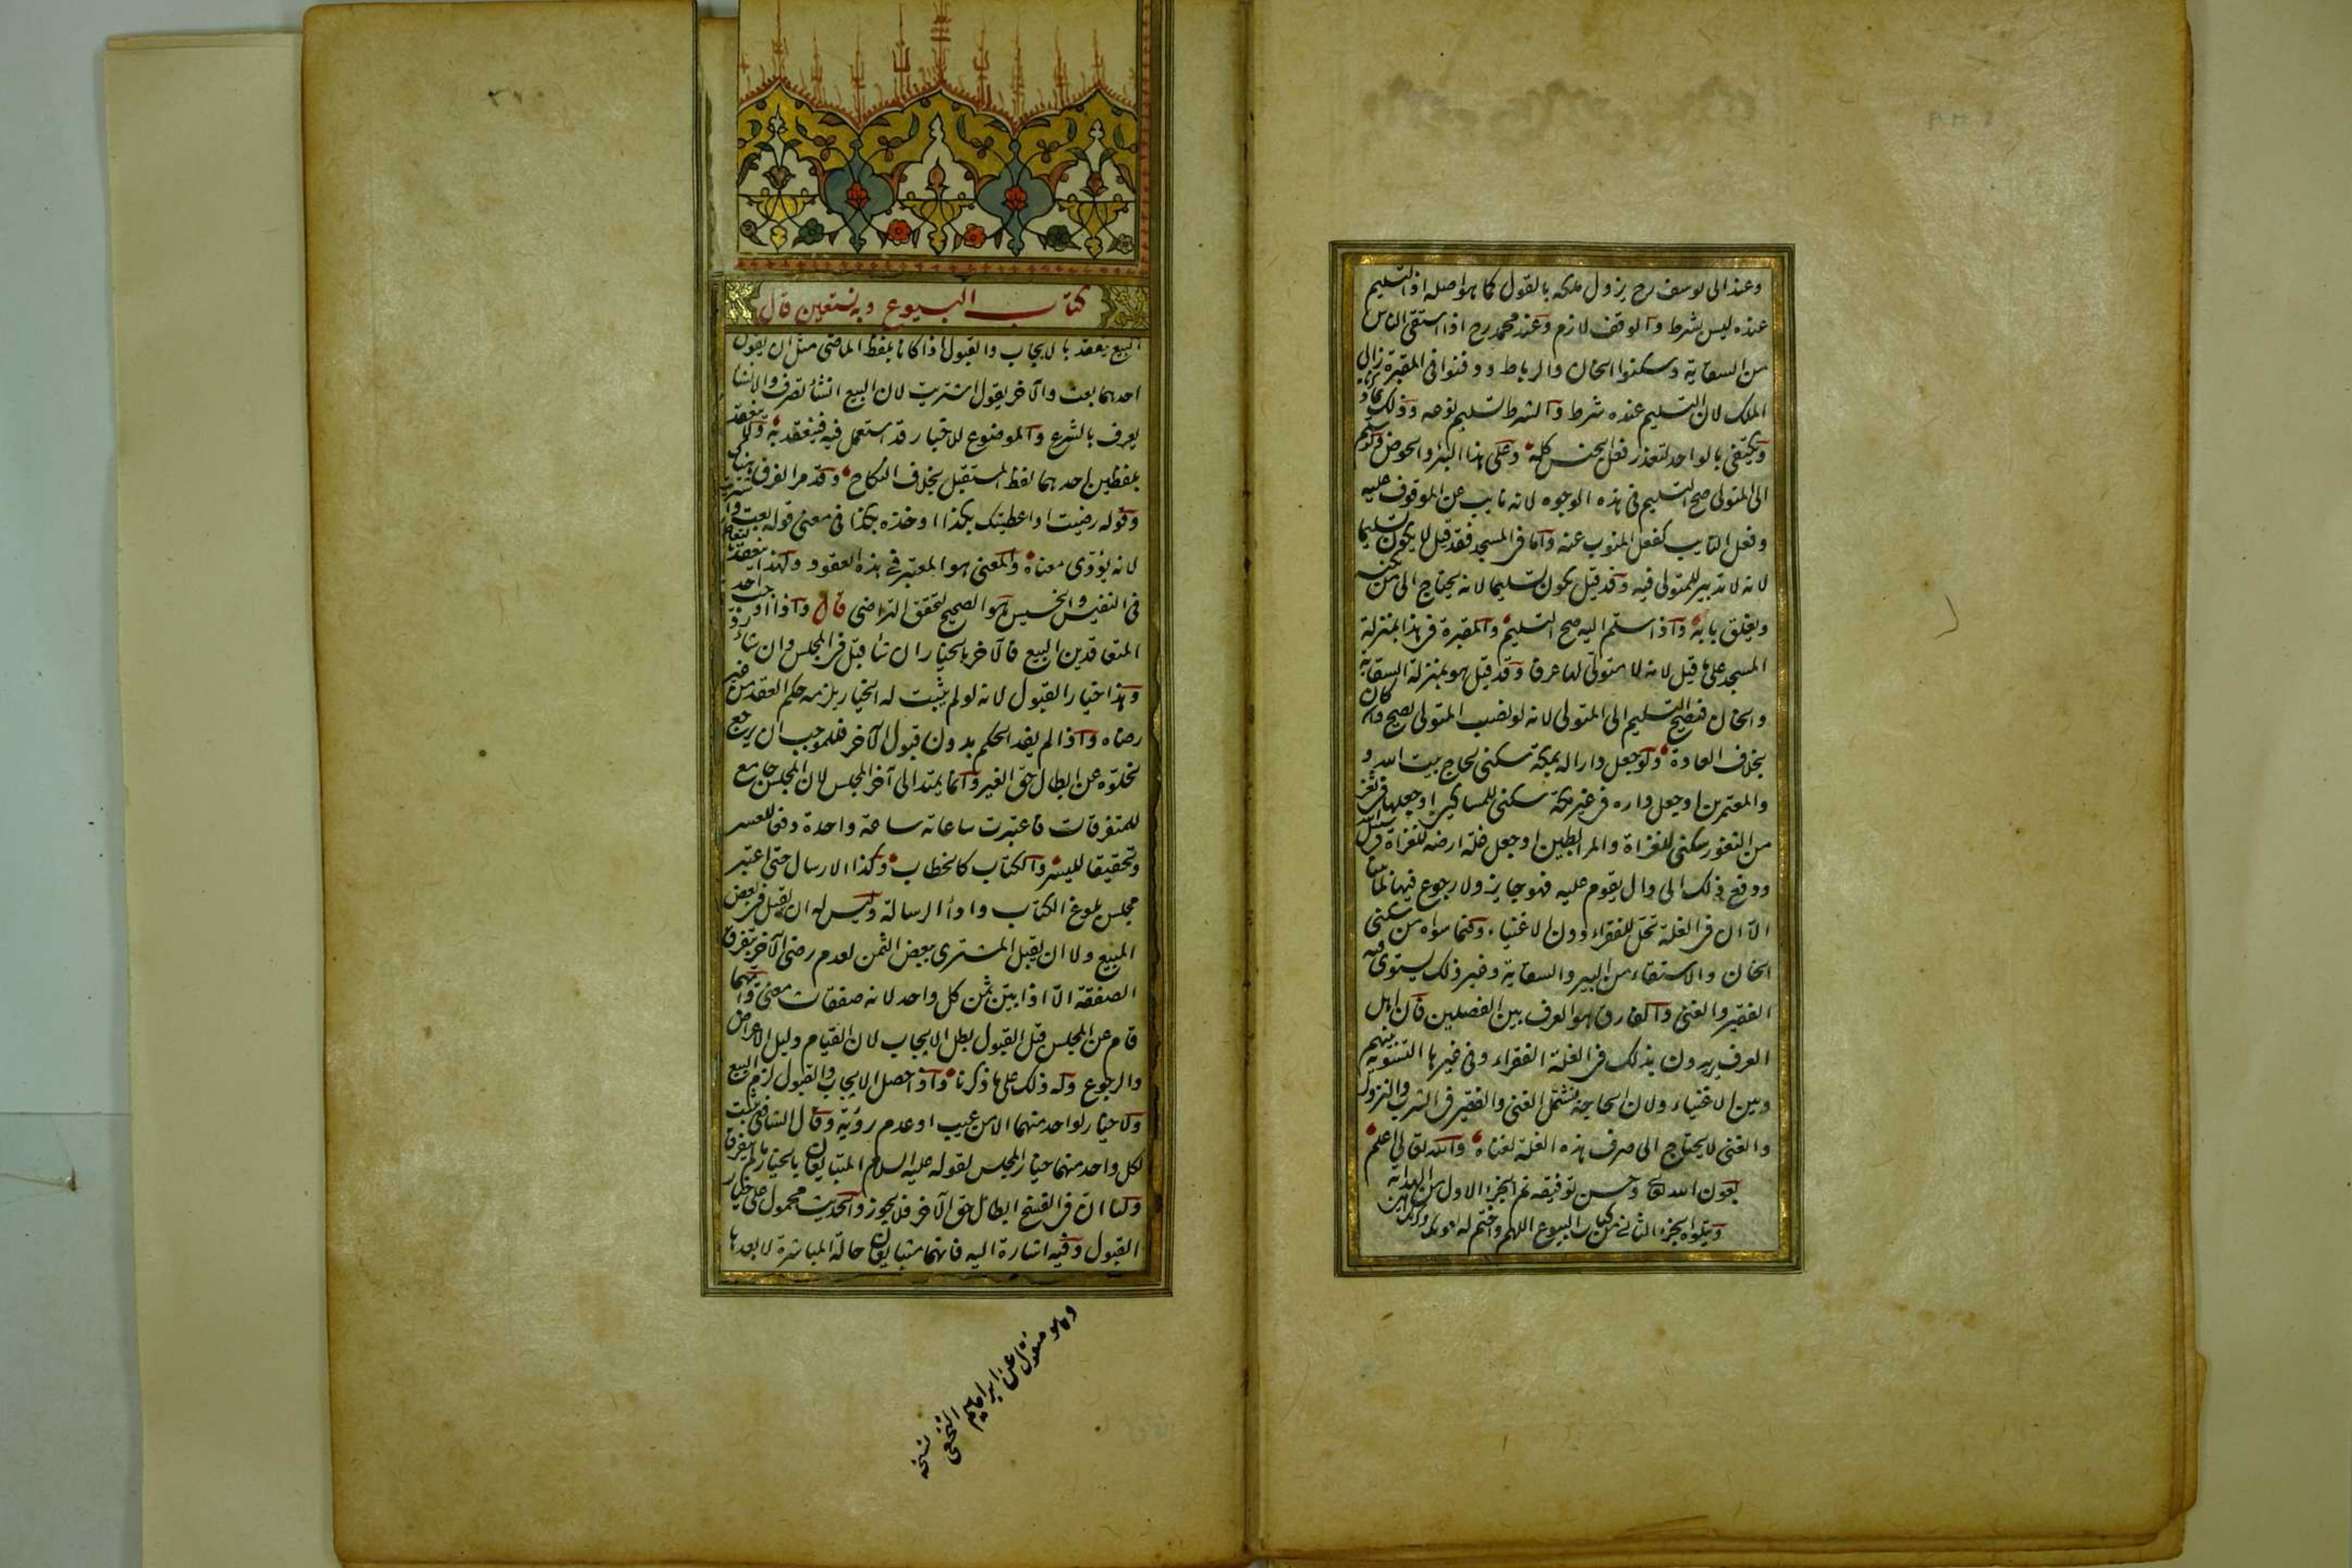 وعند ابى يوسف رح يزول ملكه بالقول كما هو اصله اذ التسليم
عنده ليس بشرط والوقف لازم وعند محمد رح اذا استقى الناس
من السقاية وسكنوا الخان والرباط ودفنوا فى المقبرة زال
الملك لان التسليم عنده شرط والشرط تسليم نوعه وذلك بما ذكرناه
ويكتفى بالواحد لتعذر فعل الجنس كله وعلى هذا البئر والحوض ولو سلم
الى المتولى صح التسليم فى هذه الوجوه لانه نايب عن الموقوف عليه
وفعل النايب كفعل المنوب عنه واما فى المسجد فقد قيل لا يكون تسليما
لانه لا تدبير للمتولى فيه وقد قيل يكون تسليما لانه يحتاج الى من يكنسه
ويغلق بابه واذا سلم اليه صح التسليم والمقبرة فى هذا بمنزلة
المسجد على ما قيل لانه لا متولى لها عرفا وقد قيل هو بمنزلة السقاية
والخان فيصح التسليم الى المتولى لانه لو نصب المتولى يصح وان كان
بخلاف العادة ولو جعل دارا له بمكة سكنى لحاج بيت الله
والمعتمرين او جعل داره فى غير مكة سكنى للمساكين او جعلها فى ثغر
من الثغور سكنى للغزاة والمرابطين او جعل غلة ارضه للغزاة فى سبيل الله
ودفع ذلك الى وال يقوم عليه فهو جايز ولا رجوع فيها لما بينا
الا ان فى الغلة تحل للفقراء دون الاغنياء وفيما سواه من سكنى
الخان والاستقاء من البير والسقاية وغير ذلك يستوى فيه
الفقير والغنى والفارق هو العرف بين الفصلين فان اهل
العرف يريدون بذلك فى الغلة الفقراء وفى غيرها التسوية بينهم
وبين الاغنياء ولان الحاجة تشتمل الغنى والفقير فى الشرب والنزول
والغنى لا يحتاج الى صرف هذه الغلة لغناه والله تعالى اعلم
بعون الله تعالى وحسن توفيقه تم الجزء الاول من الهداية
ويتلوه الجزء الثانى من كتاب البيوع اللهم واختم له
كتاب البيوع وبه نستعين قال
البيع ينعقد بالايجاب والقبول اذا كانا بلفظ الماضى مثل ان يقول
احدهما بعت والآخر يقول اشتريت لان البيع انشأ تصرف والانشا
يعرف بالشرع والموضوع للاخبار قد استعمل فيه فينعقد به ولا ينعقد
بلفظين احدهما لفظ المستقبل بخلاف النكاح وقد مر الفرق هناك
وقوله رضيت او اعطيتك بكذا او خذه بكذا فى معنى قوله بعت واشتريت
لانه يؤدى معناه والمعنى هو المعتبر فى هذه العقود ولهذا ينعقد بالتعاطى
فى النفيس والخسيس هو الصحيح لتحقق التراضى قال واذا اوجب احد
المتعاقدين البيع فالآخر بالخيار ان شأ قبل فى المجلس وان شأ رد
وهذا خيار القبول لانه لو لم يثبت له الخيار يلزمه حكم العقد من غير
رضاه واذا لم يفد الحكم بدون قبول الآخر فللموجب ان يرجع
لخلوه عن ابطال حق الغير وانما يمتد الى آخر المجلس لان المجلس جامع
للمتفرقات فاعتبرت ساعاته ساعة واحدة دفعا للعسر
وتحقيقا لليسر والكتاب كالخطاب وكذا الارسال حتى اعتبر
مجلس بلوغ الكتاب وادأ الرسالة وليس له ان يقبل فى بعض
المبيع ولا ان يقبل المشترى ببعض الثمن لعدم رضى الآخر بتفرق
الصفقة الا اذا بين ثمن كل واحد لانه صفقات معنى وايهما
قام عن المجلس قبل القبول بطل الايجاب لان القيام دليل الاعراض
والرجوع وله ذلك على ما ذكرنا واذا حصل الايجاب والقبول لزم البيع
ولا خيار لواحد منهما الا من عيب او عدم رؤية وقال الشافعى يثبت
لكل واحد منهما خيار المجلس لقوله عليه السلام المتبايعان بالخيار ما لم يتفرقا
ولنا ان فى الفسخ ابطال حق الآخر فلا يجوز والحديث محمول على خيار
القبول وفيه اشارة اليه فانهما متبايعان حالة المباشرة لا بعدها
منقول عن ابراهيم
النخعى
نسخه